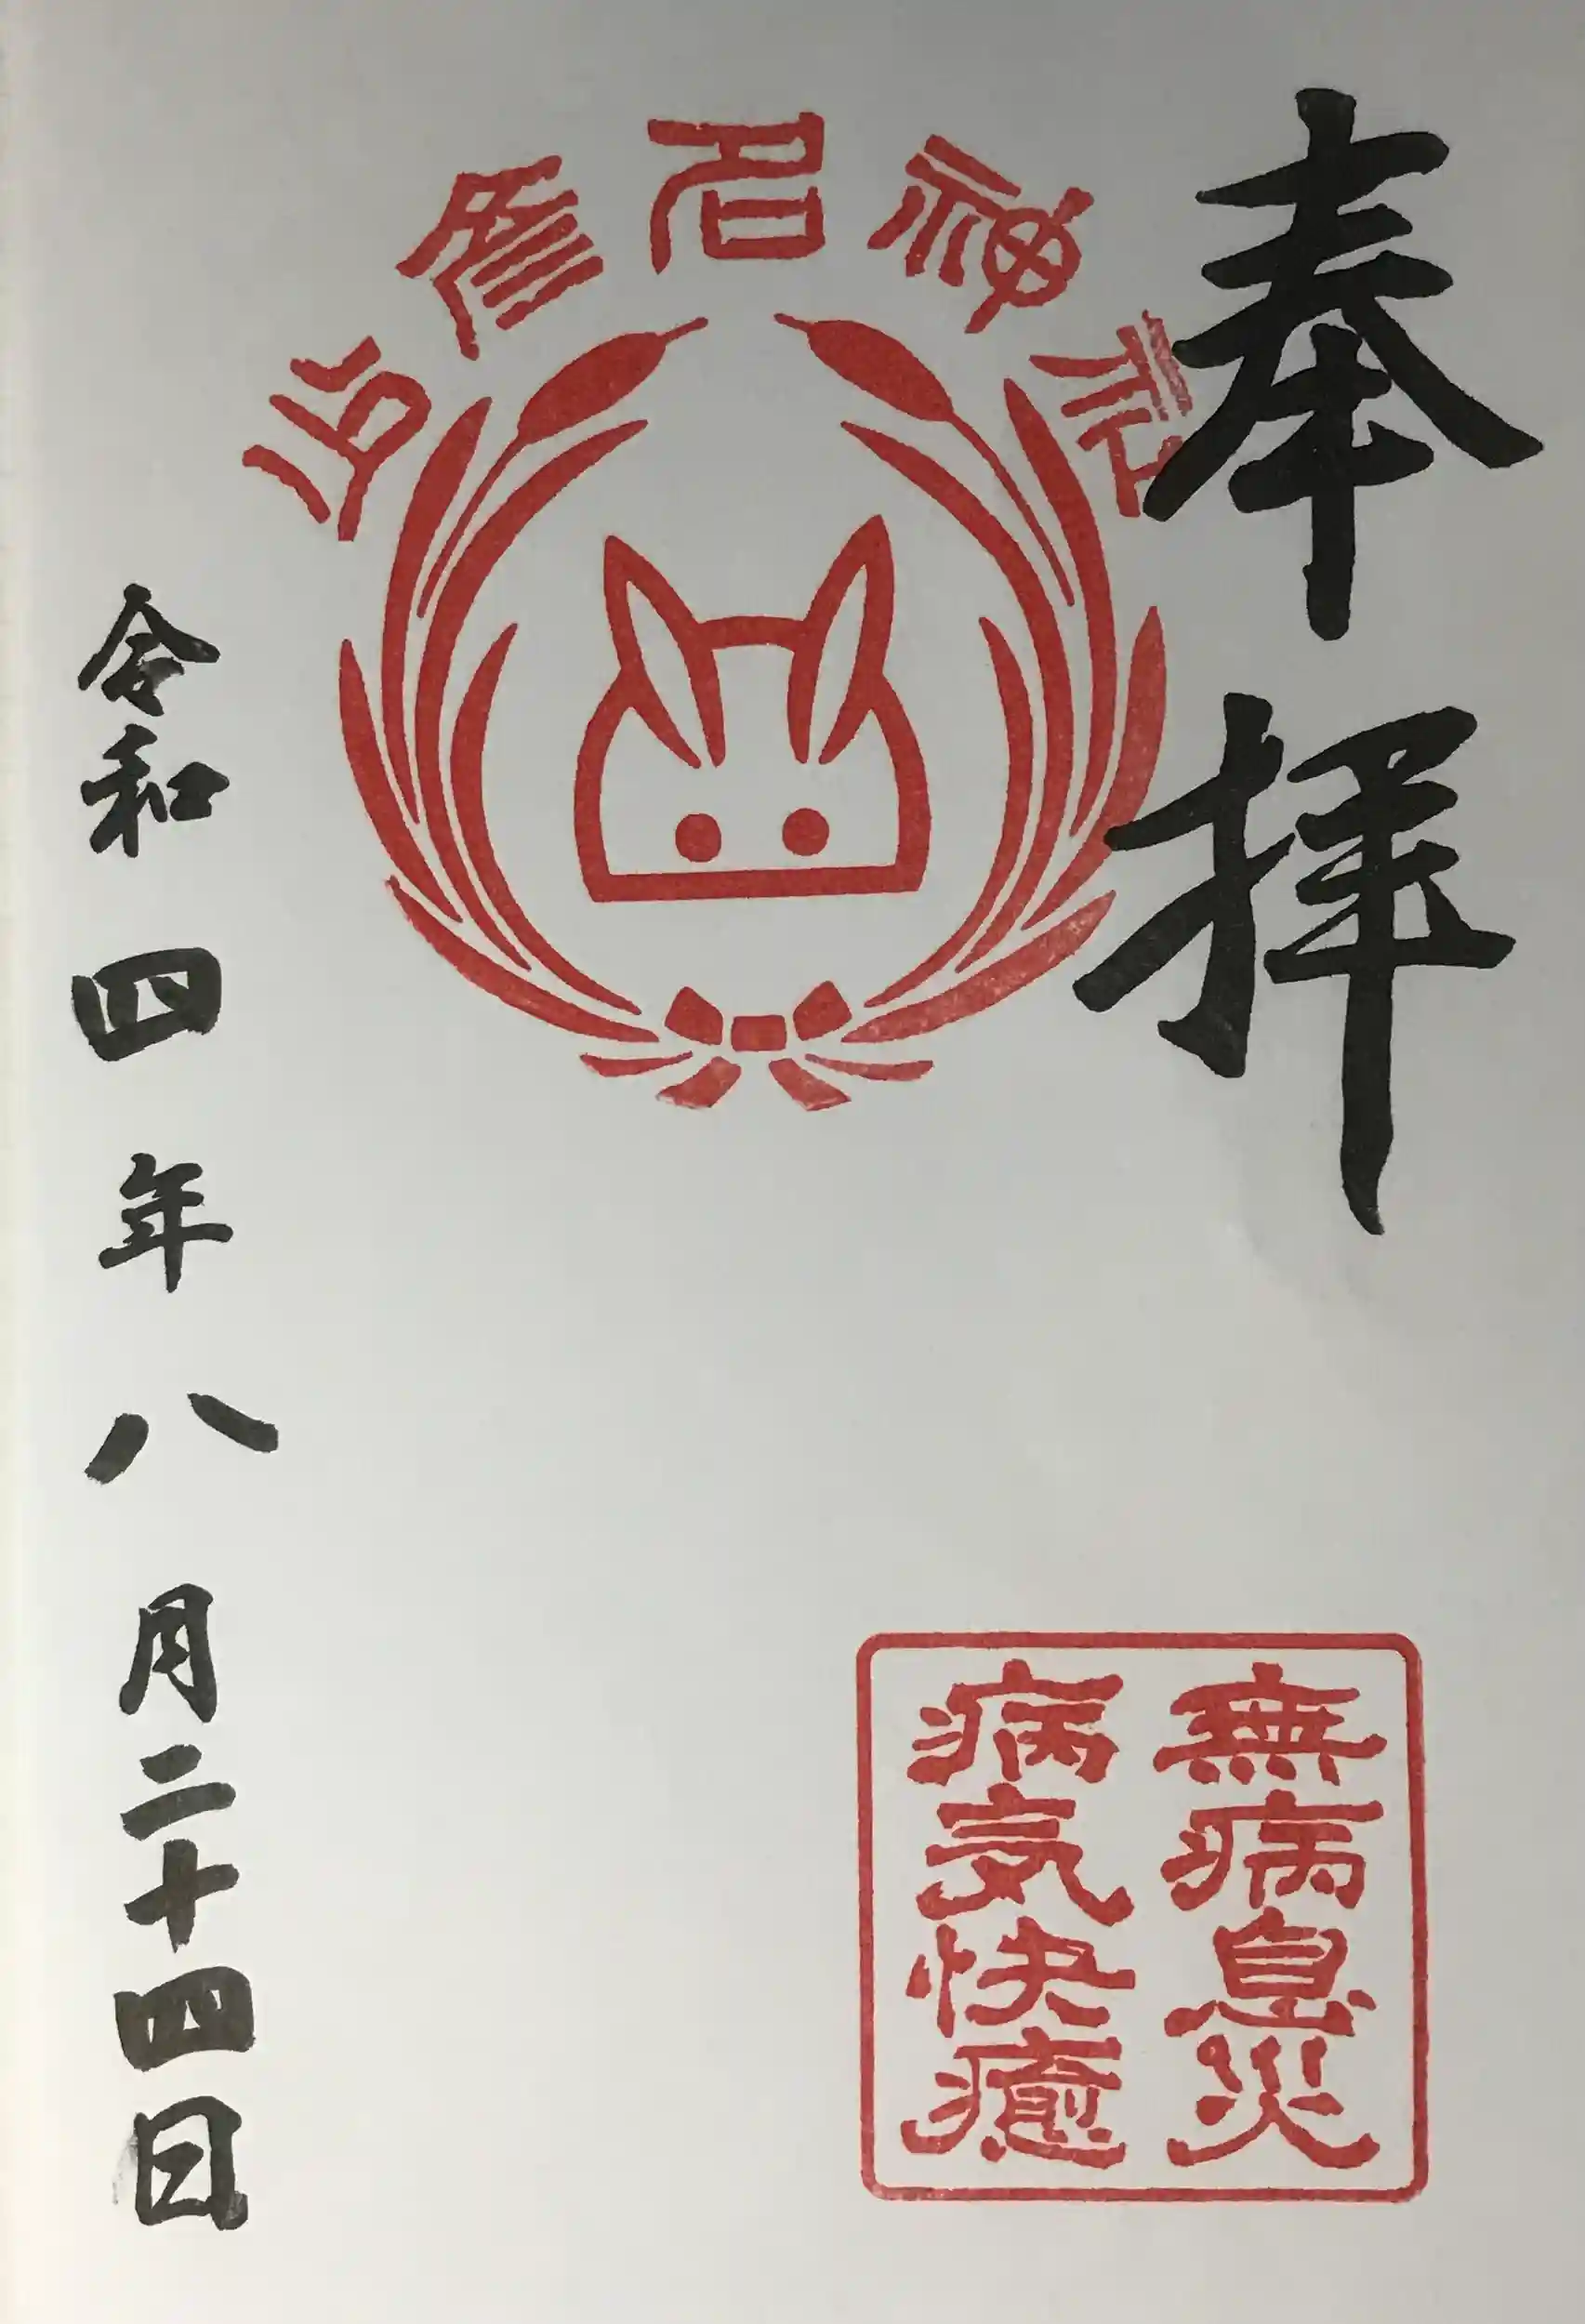 奉拝
少彦名神社
無病息災
病気快癒
令和四年八月二十四日